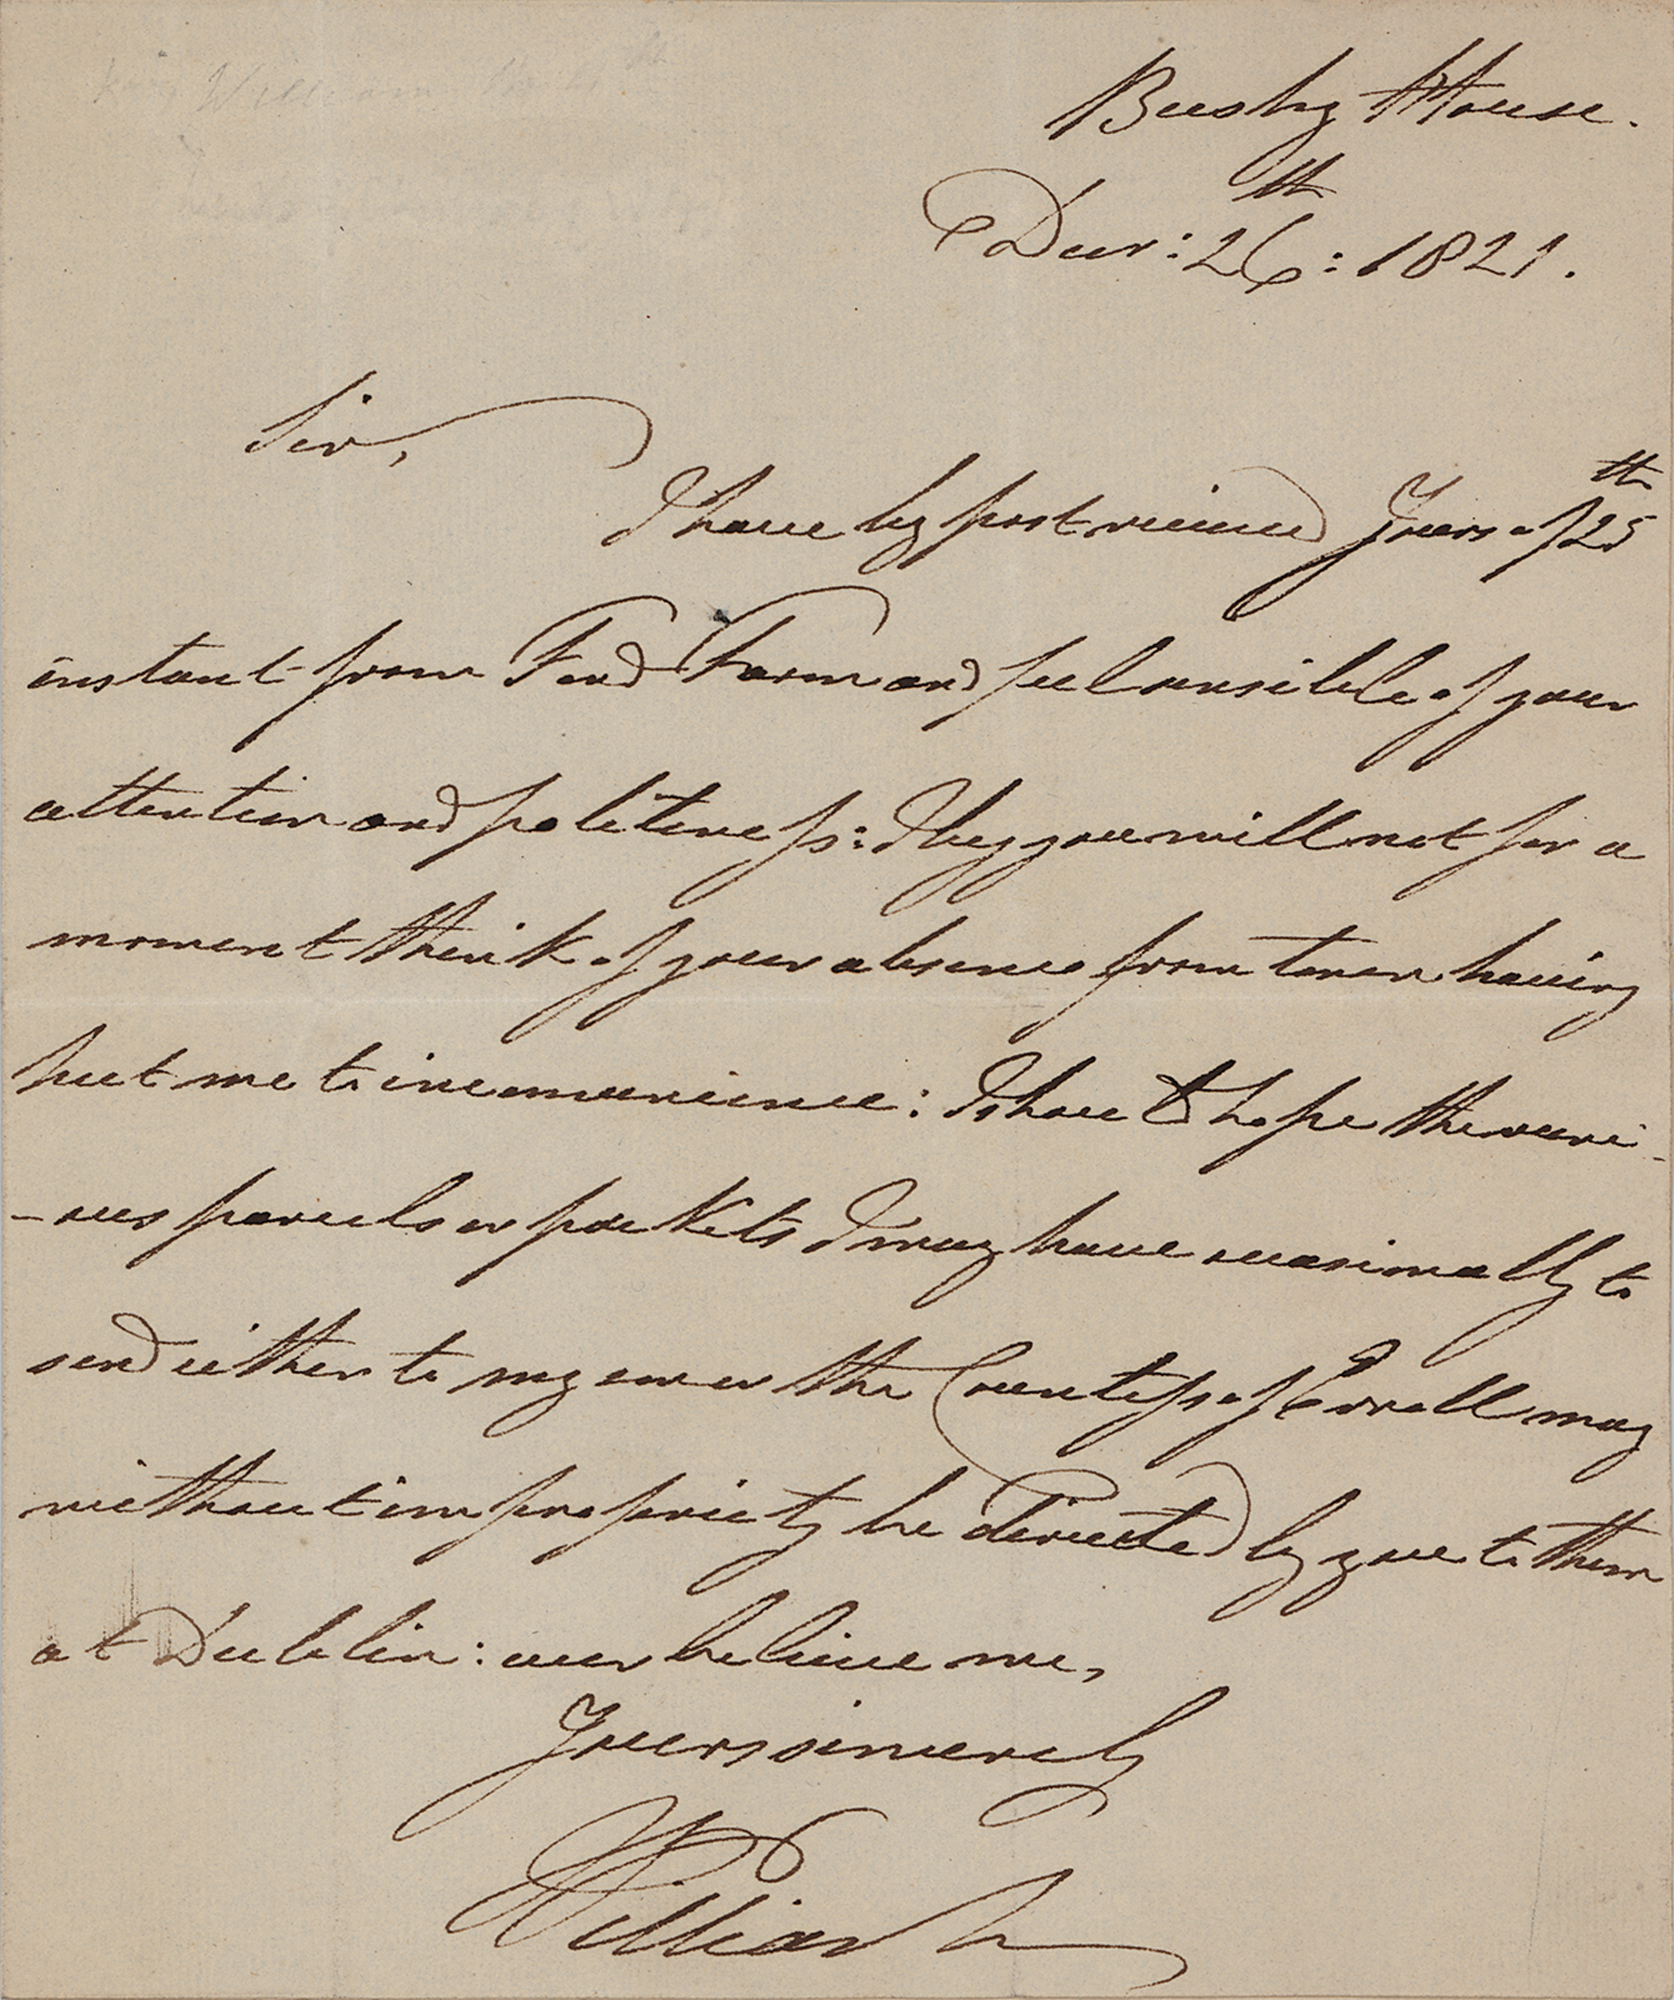 King William the 4th
Bushy House.
Decr: 26th: 1821.
Sir,
I have by post received Yours of 25th
instant from Ford Farm and feel sensible of your
attention and politeness: I beg you will not for a
moment think of your absence from town having
put me to inconvenience: I should hope the vari-
-ous parcels or packets I may have occasionally to
send either to my son or the Countess of Erroll may
without impropriety be directed by you to them
at Dublin: ever believe me,
Yours sincerely
William